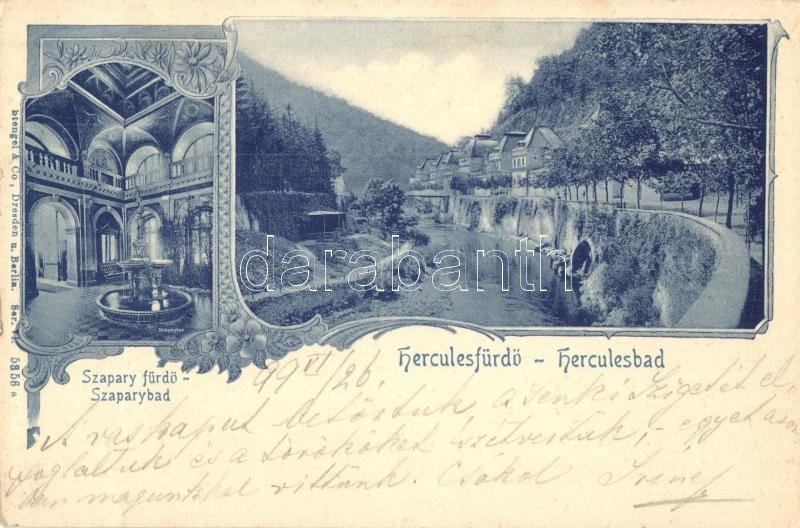 Stengel & Co, Dresden u. Berlin. Serie 5856 a
darabanth
Szapáryfürdő
Szapary fürdő -
Szaparybad
Herculesfürdő - Herculesbad
99 VI/26.
A vaskaput betörtük a Senki Szigetét el-
foglaltuk és a törököket szétvertük, - egyet azon-
ban magunkkal vittünk. Csókol Irénes